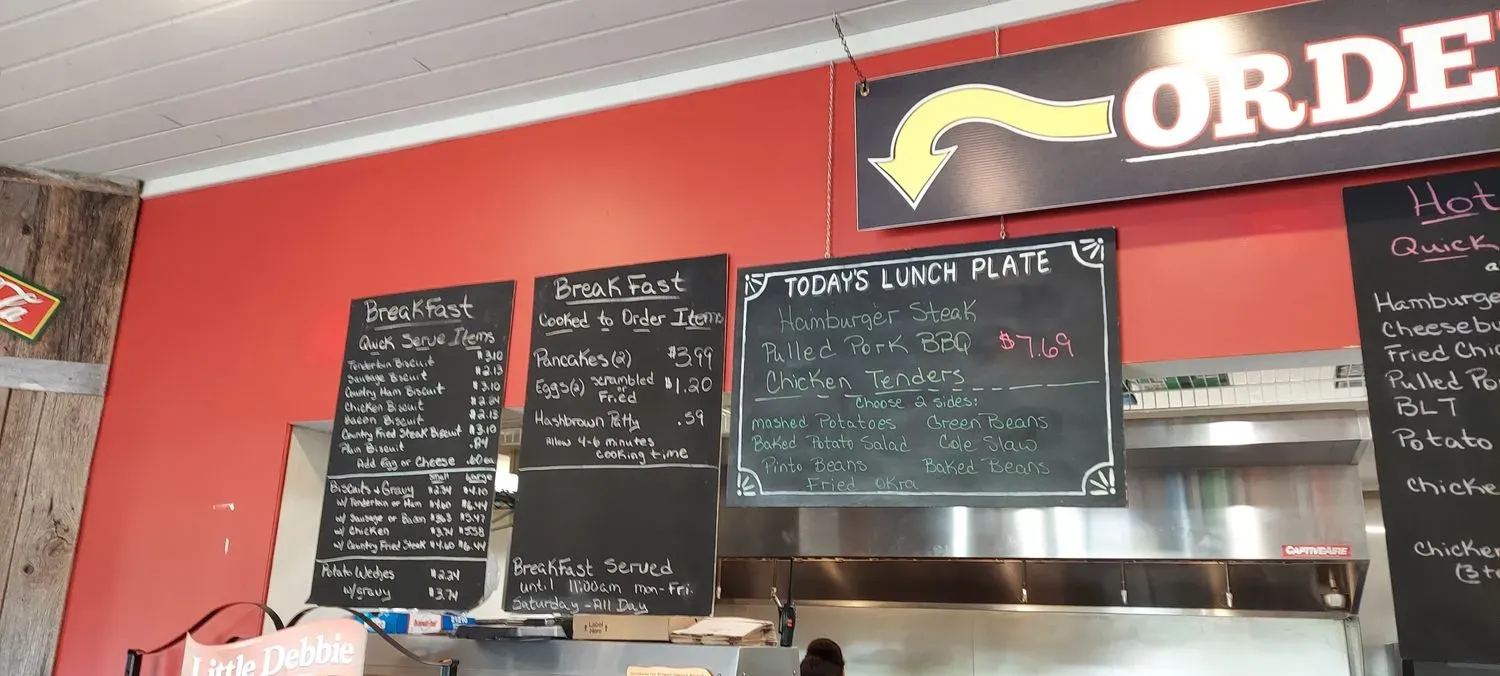 BreakFast
Quick Serve Items
Tenderloin Biscuit $3.10
Sausage Biscuit $2.13
Country Ham Biscuit $3.10
Chicken Biscuit $2.24
Bacon Biscuit $2.13
Country Fried Steak Biscuit $3.10
Plain Biscuit .84
Add Egg or Cheese .60 ea
Small Large
Biscuits & Gravy $2.34 $4.10
w/ Tenderloin or Ham $4.60 $6.44
w/ Sausage or Bacon $3.63 $5.47
w/ Chicken $3.74 $5.58
w/ Country Fried Steak $4.60 $6.44
Potato Wedges $2.24
w/gravy $3.74
BreakFast
Cooked to Order Items
Pancakes (2) $3.99
Eggs (2) scrambled or Fried $1.20
Hashbrown Patty .59
Allow 4-6 minutes
cooking time
BreakFast Served
until 11:00am mon-Fri.
Saturday - All Day
TODAY'S LUNCH PLATE
Hamburger Steak
Pulled Pork BBQ $7.69
Chicken Tenders
Choose 2 sides:
mashed Potatoes Green Beans
Baked Potato Salad Cole Slaw
Pinto Beans Baked Beans
Fried Okra
ORDE
Hot
Quick
Hamburge
Cheesebu
Fried Chic
Pulled Po
BLT
Potato
Chicke
Chicken
(3 te
CAPTIVEAIRE
Little Debbie
Label
Here